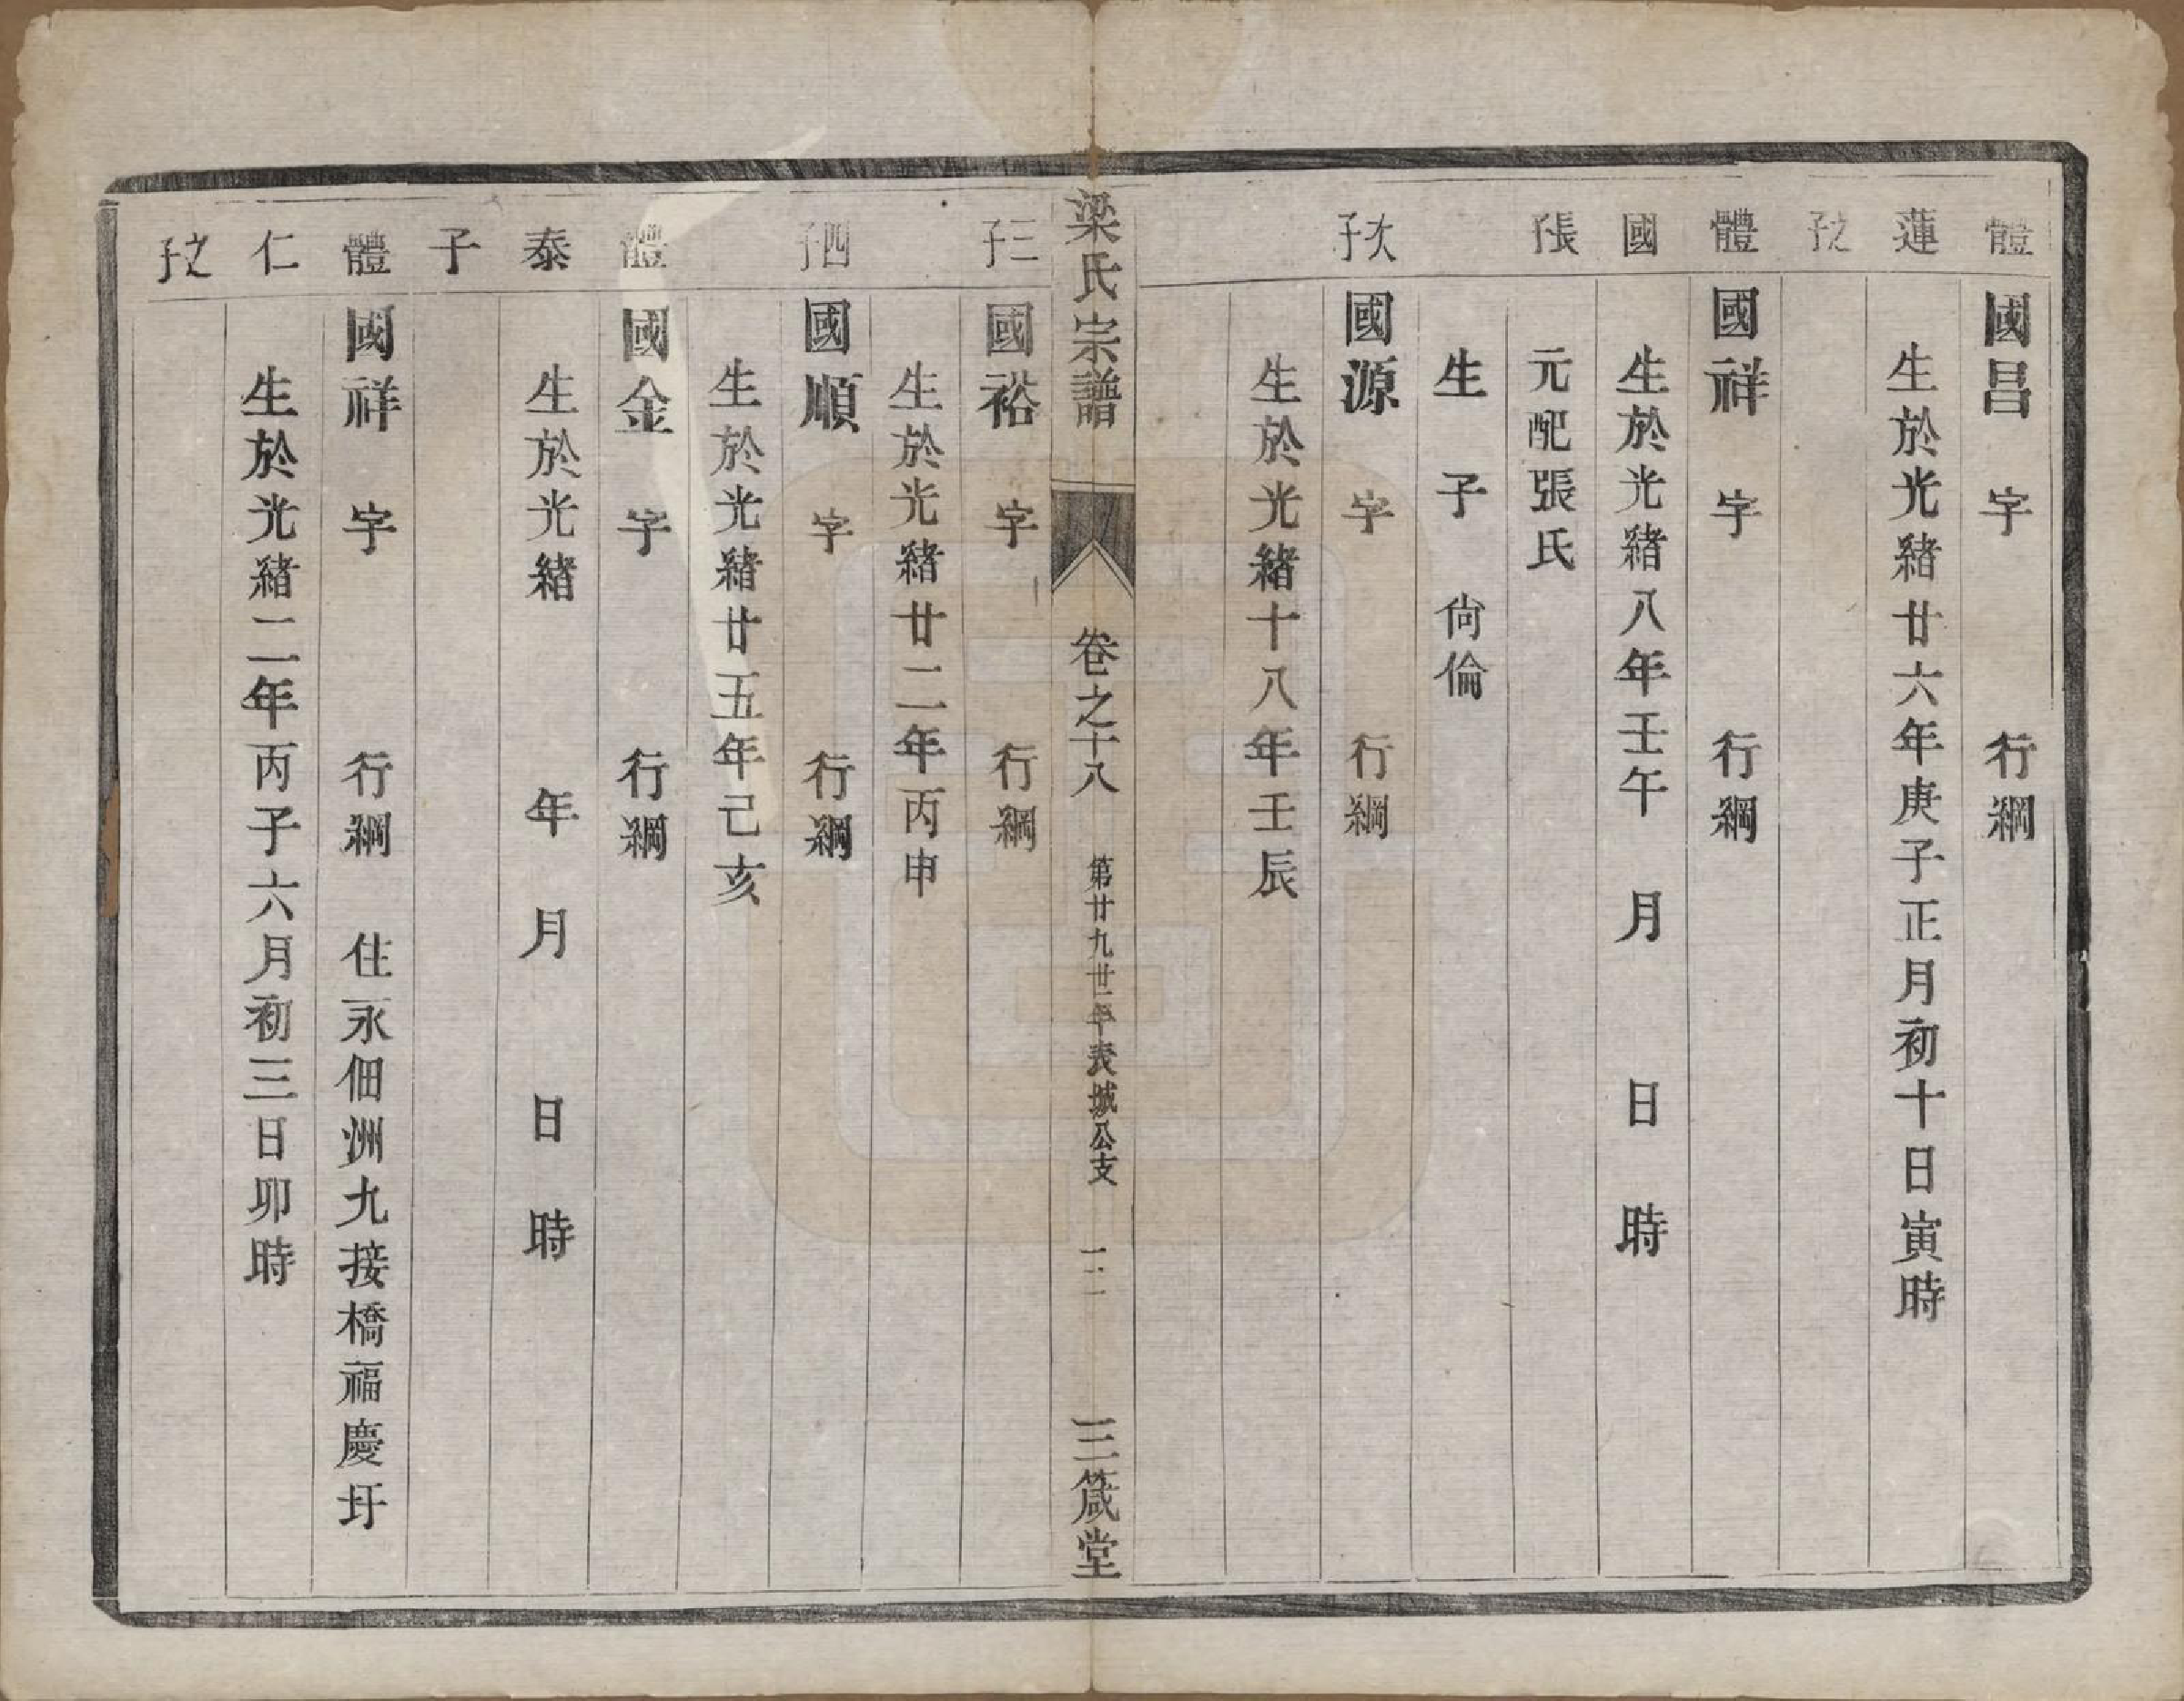 體蓮之子
國昌　字　行綱
生於光緒廿六年庚子正月初十日寅時
體國長子
國祥　字　行綱
生於光緒八年壬午　月　日　時
元配張氏
生　子　尙倫
次子
國源　字　行綱
生於光緒十八年壬辰
梁氏宗譜　卷之十八　第廿九世年表城公支　二　三箴堂
三子
國裕　字　行綱
生於光緒廿二年丙申
四子
國順　字　行綱
生於光緒廿五年己亥
體泰子
國金　字　行綱
生於光緒　年　月　日　時
體仁之子
國祥　字　行綱　住永佃洲九接橋福慶圩
生於光緒二年丙子六月初三日卯時